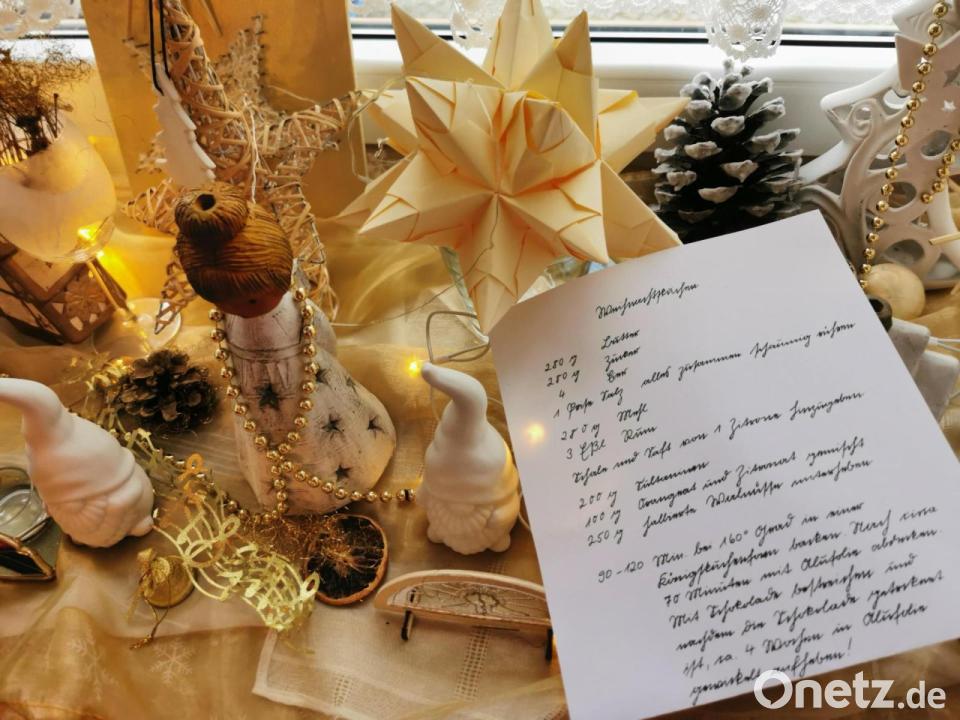 Weihnachtskuchen
250 g Butter
250 g Zucker
4 Eier
1 Prise Salz alles zusammen schaumig rühren
250 g Mehl
3 Eßl. Rum
Schale und Saft von 1 Zitrone hinzugeben
200 g Sultaninen
100 g Orangeat und Zitronat gemischt
250 g halbierte Walnüsse unterheben
90-120 Min. bei 160° Grad in einer
Königskuchenform backen. Nach circa
70 Minuten mit Alufolie abdecken.
Mit Schokolade bestreichen und
nachdem die Schokolade getrocknet
ist, ca. 4 Wochen in Alufolie
gewickelt aufheben!
Onetz.de